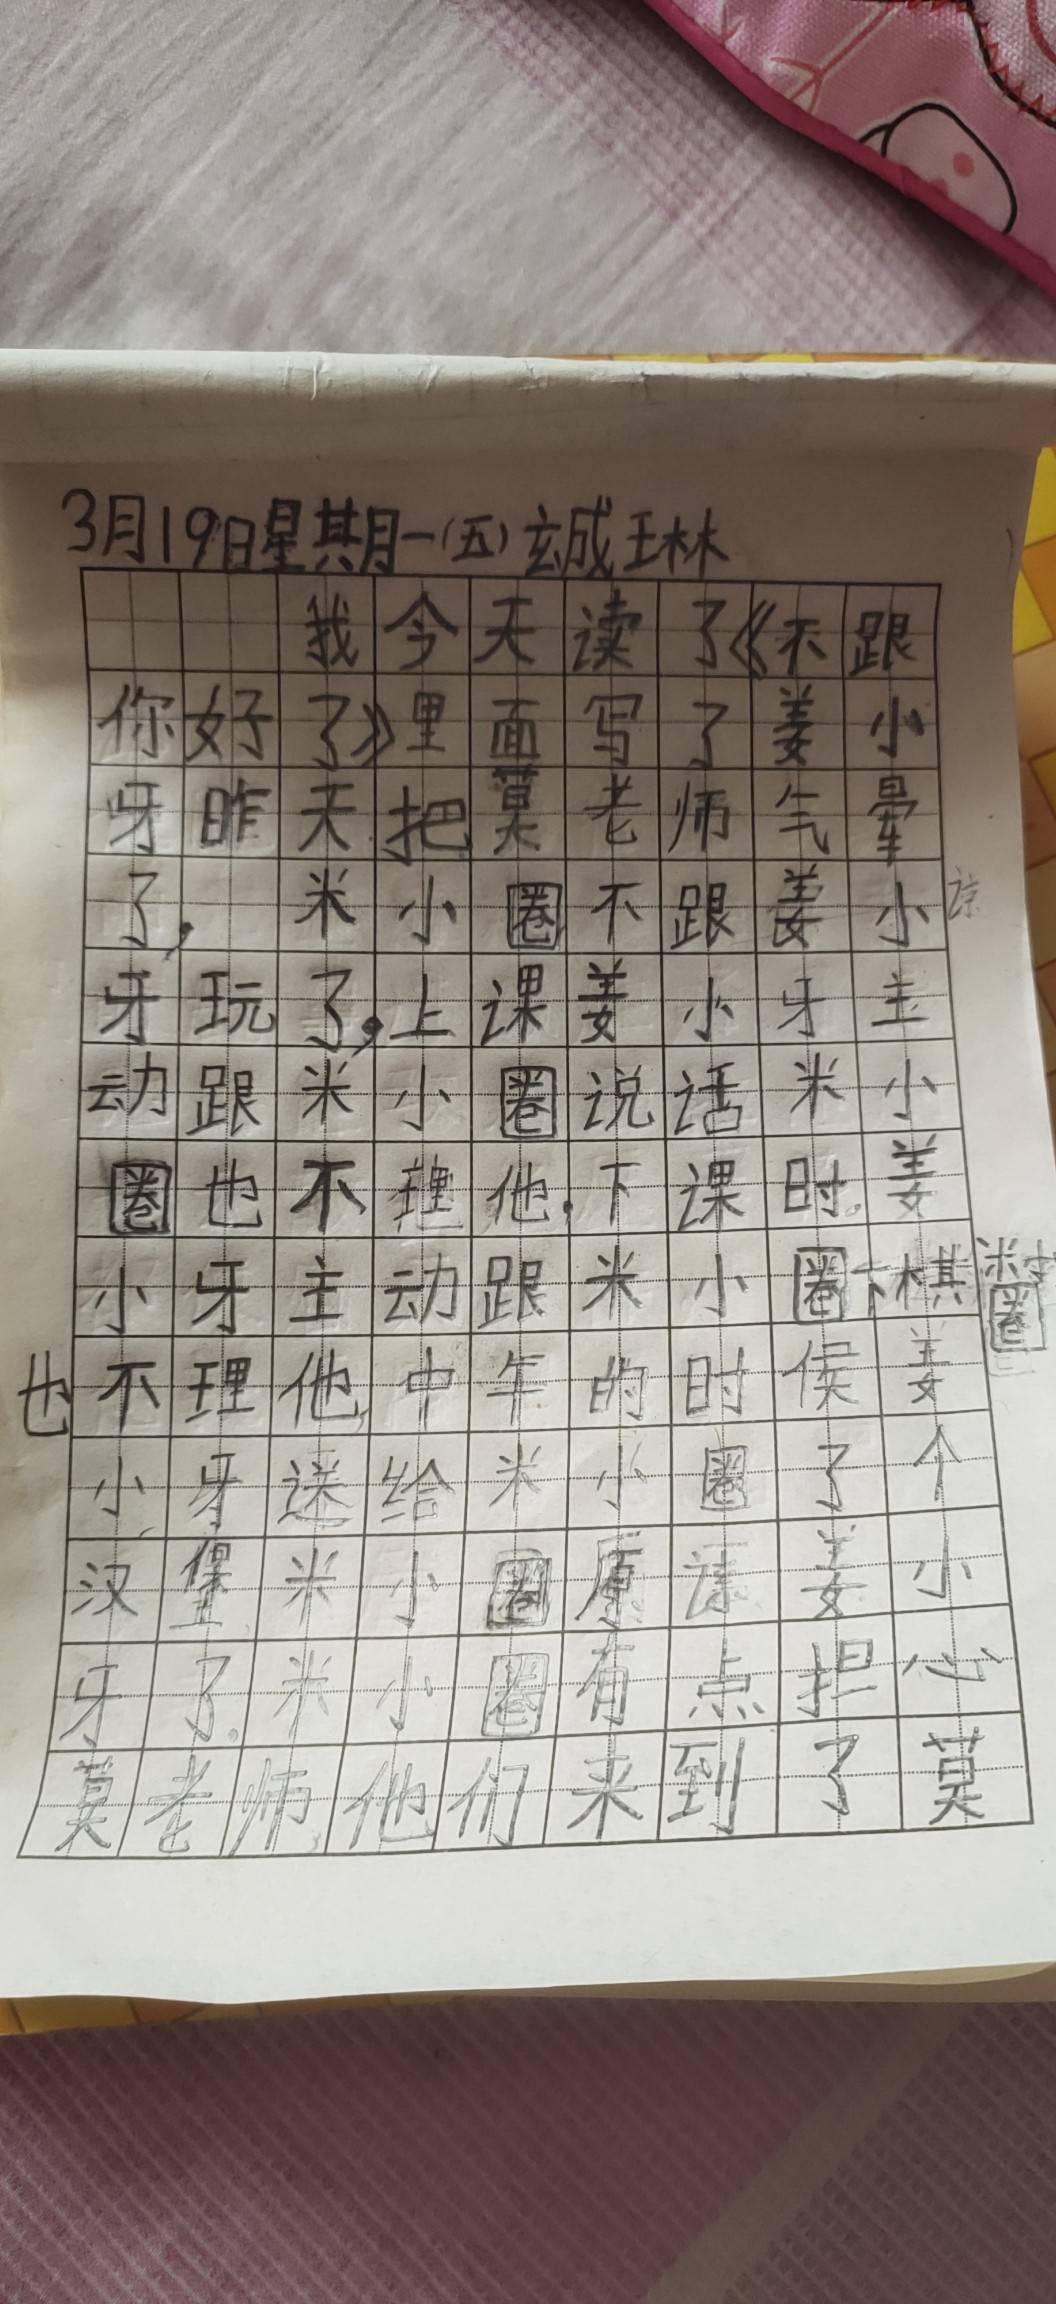 3月19日星期一(五)玄诚琳
我今天读了《不跟
你好了》里面写了姜小
牙昨天把莫老师气晕
了,米小圈不跟姜小
牙玩了,上课姜小牙主
动跟米小圈说话米小
圈也不理他,下课时,姜
小牙主动跟米小圈下棋米小圈
也不理他,中午的时侯姜
小牙送给米小圈了个
汉堡米小圈原谅姜小
牙了.米小圈有点担心
莫老师,他们来到了莫
谅